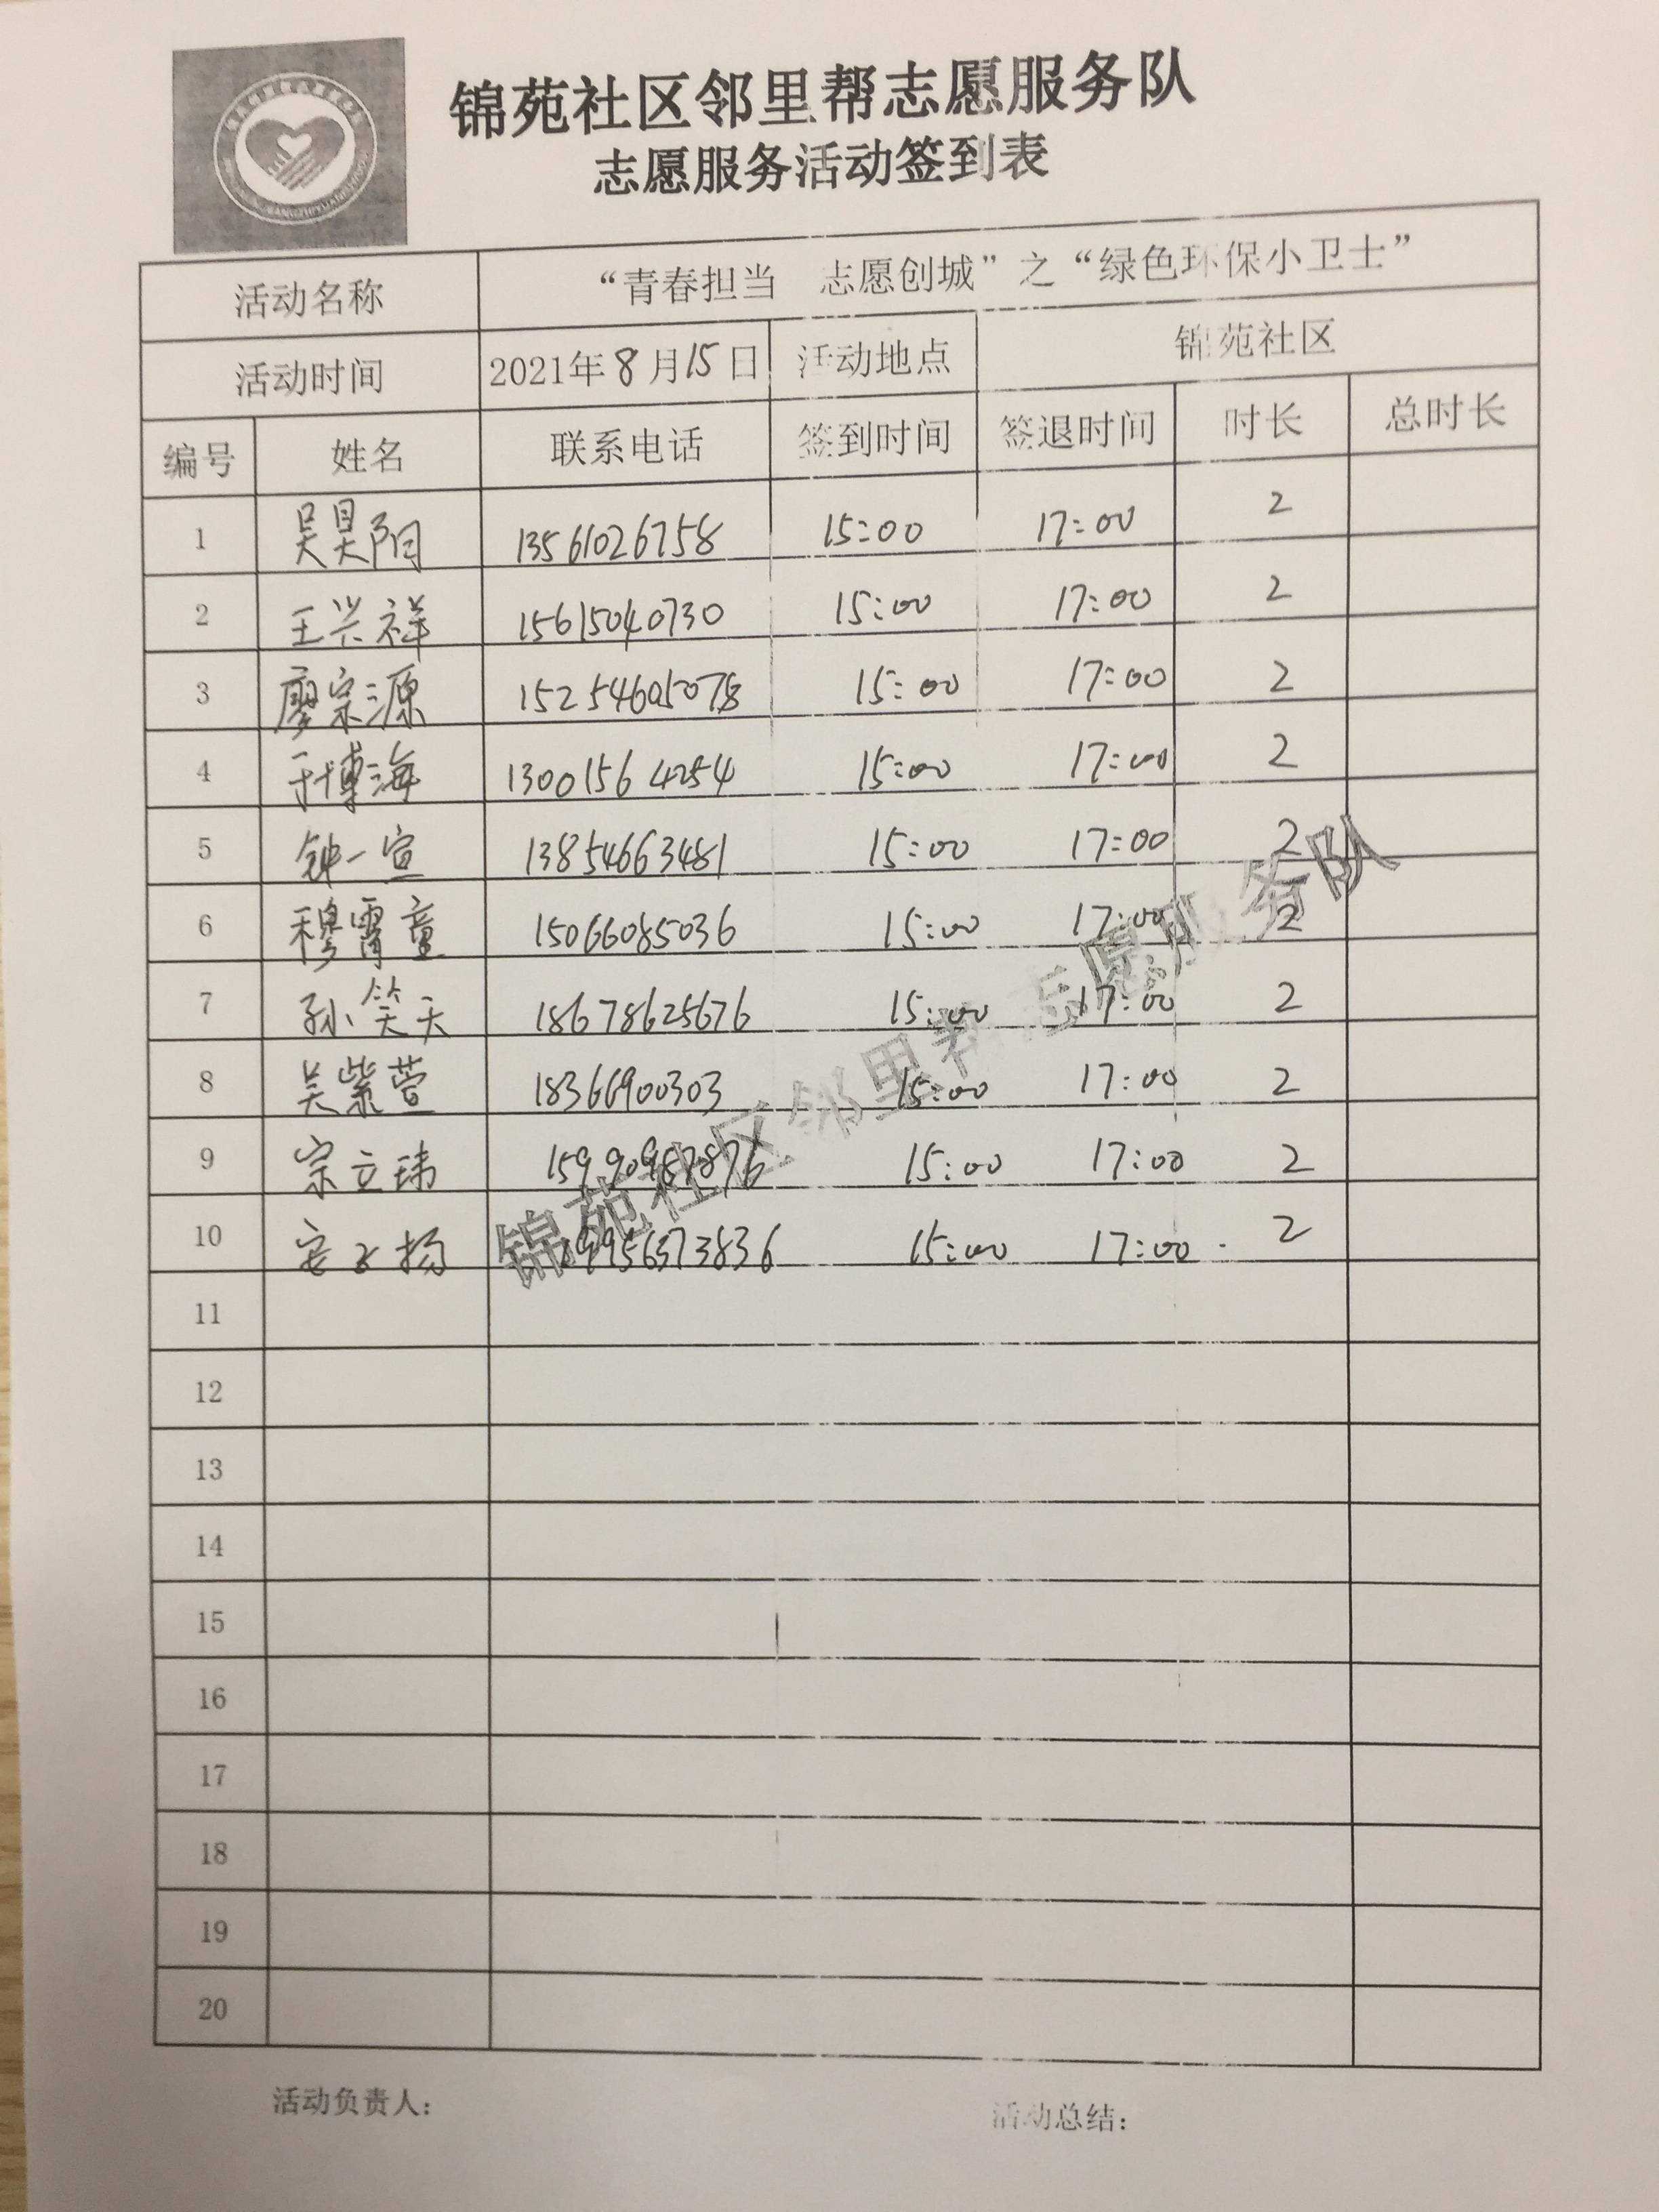 锦苑社区邻里帮志愿服务队
志愿服务活动签到表
活动名称 “青春担当 志愿创城”之“绿色环保小卫士”
活动时间 2021年8月15日 活动地点 锦苑社区
编号 姓名 联系电话 签到时间 签退时间 时长 总时长
1 吴昊阳 13561026758 15:00 17:00 2
2 王兴祥 15615040730 15:00 17:00 2
3 廖宗源 15254605078 15:00 17:00 2
4 于博海 13001564254 15:00 17:00 2
5 钟一宣 13854663481 15:00 17:00 2
6 穆霄童 15066085036 15:00 17:00 2
7 孙笑天 18678625676 15:00 17:00 2
8 吴紫萱 18366900303 15:00 17:00 2
9 宗立玮 15:00 17:00 2
10 15:00 17:00 2
11
12
13
14
15
16
17
18
19
20
锦苑社区邻里帮志愿服务队
活动负责人: 活动总结: